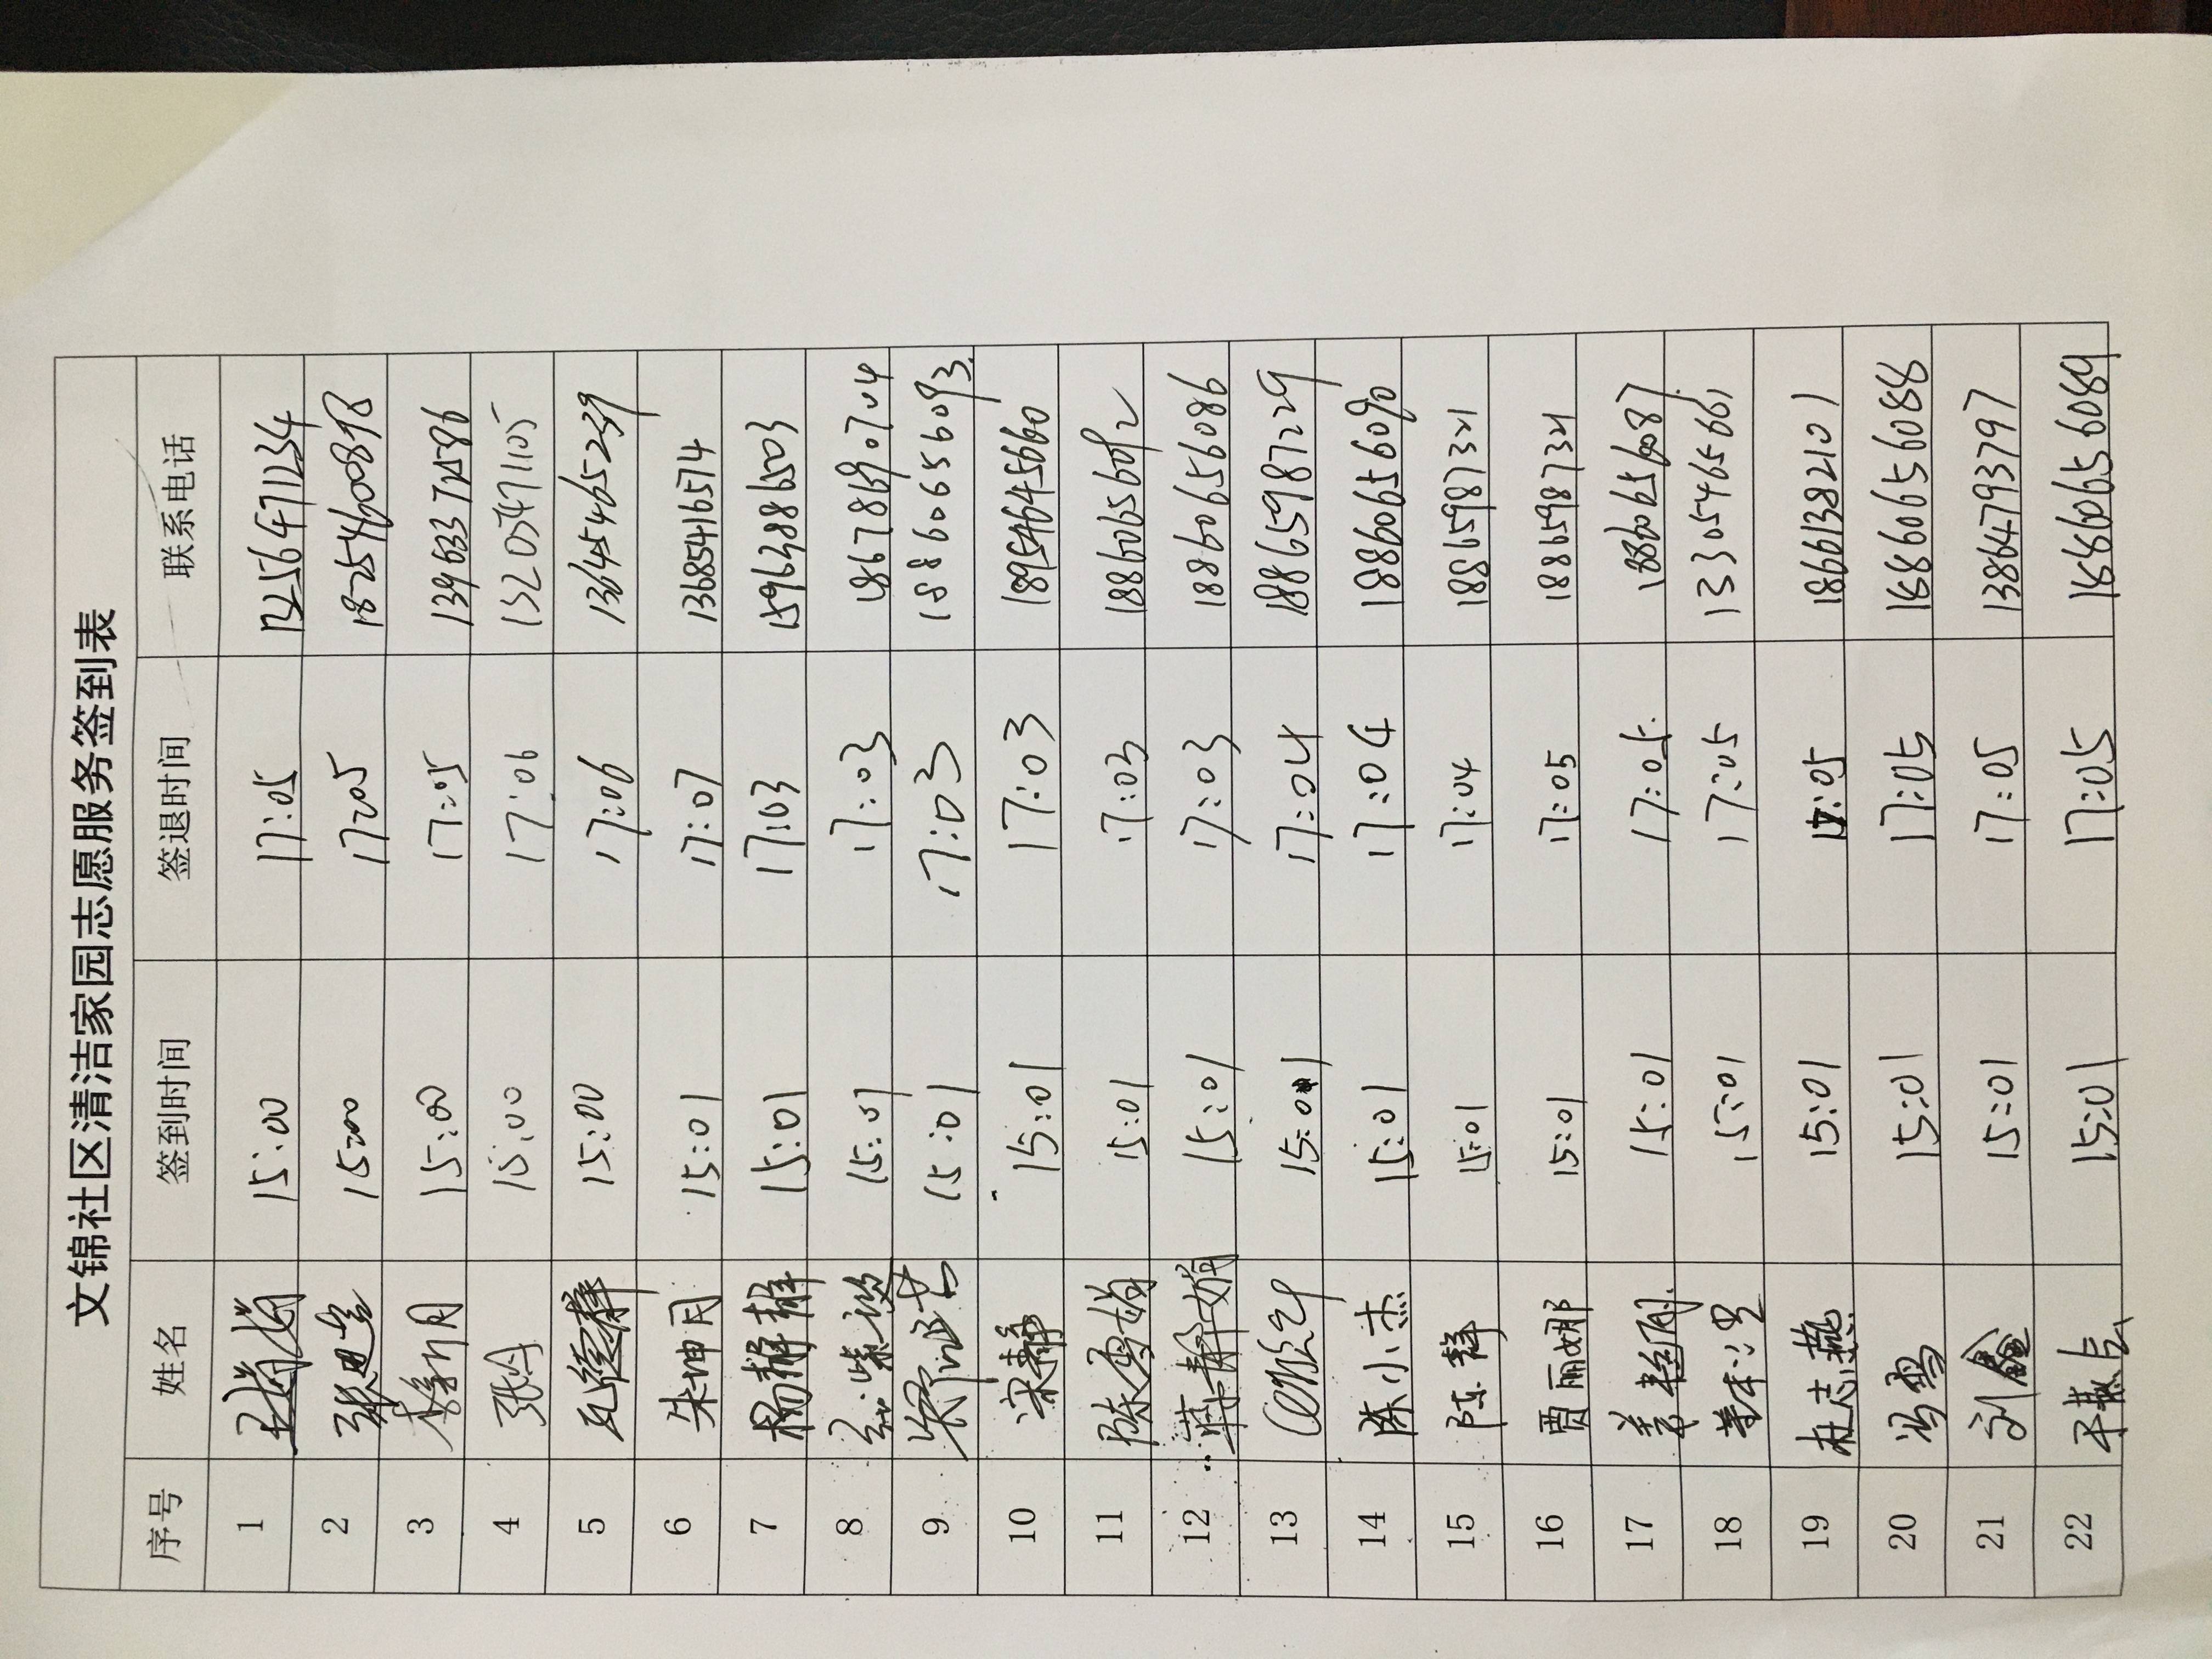 文锦社区清洁家园志愿服务签到表
序号 姓名 签到时间 签退时间 联系电话
1 15:00 17:05 13256471234
2 15:00 17:05 18254600898
3 15:00 17:05
4 张 15:00 17:06 15205471105
5 15:00 17:06 13645465239
6 朱坤月 15:01 17:07 13685416574
7 杨静 15:01 17:03 15963886503
8 15:01 17:03 186786890704
9 15:01 17:03 18860656093
10 宋静 15:01 17:03 18954645660
11 陈 15:01 17:03 18860656092
12 静娟 15:01 17:03 18860656086
13 15:01 17:04 18865987229
14 陈小杰 15:01 17:04 18860656090
15 陈静 15:01 17:04 18865987321
16 贾丽娜 15:01 17:05 18865987321
17 姜 15:01 17:05 18860656087
18 15:01 17:05 13305465661
19 杜志燕 15:01 17:05 18661382101
20 冯雪 15:01 17:05 18860656088
21 刘鑫 15:01 17:05 13864793797
22 15:01 17:05 18860656089